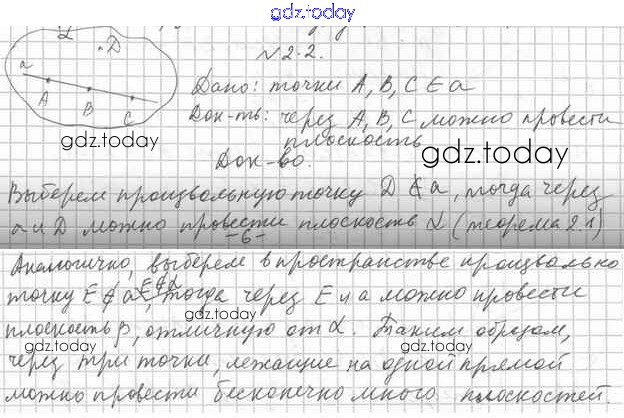 gdz.today
№ 2.2.
α
D
a
A
B
C
Дано: точки A, B, C ∈ a
Док-ть: через A, B, C можно провести
плоскость
gdz.today
gdz.today
Док-во.
Выберем произвольную точку D ∉ a, тогда через
a и D можно провести плоскость α (теорема 2.1)
-6-
Аналогично, выберем в пространстве произвольно
точку E ∉ a, E ∉ α, тогда через E и a можно провести
плоскость β, отличную от α. Таким образом,
gdz.today
gdz.today
через три точки, лежащие на одной прямой
можно провести бесконечно много плоскостей.